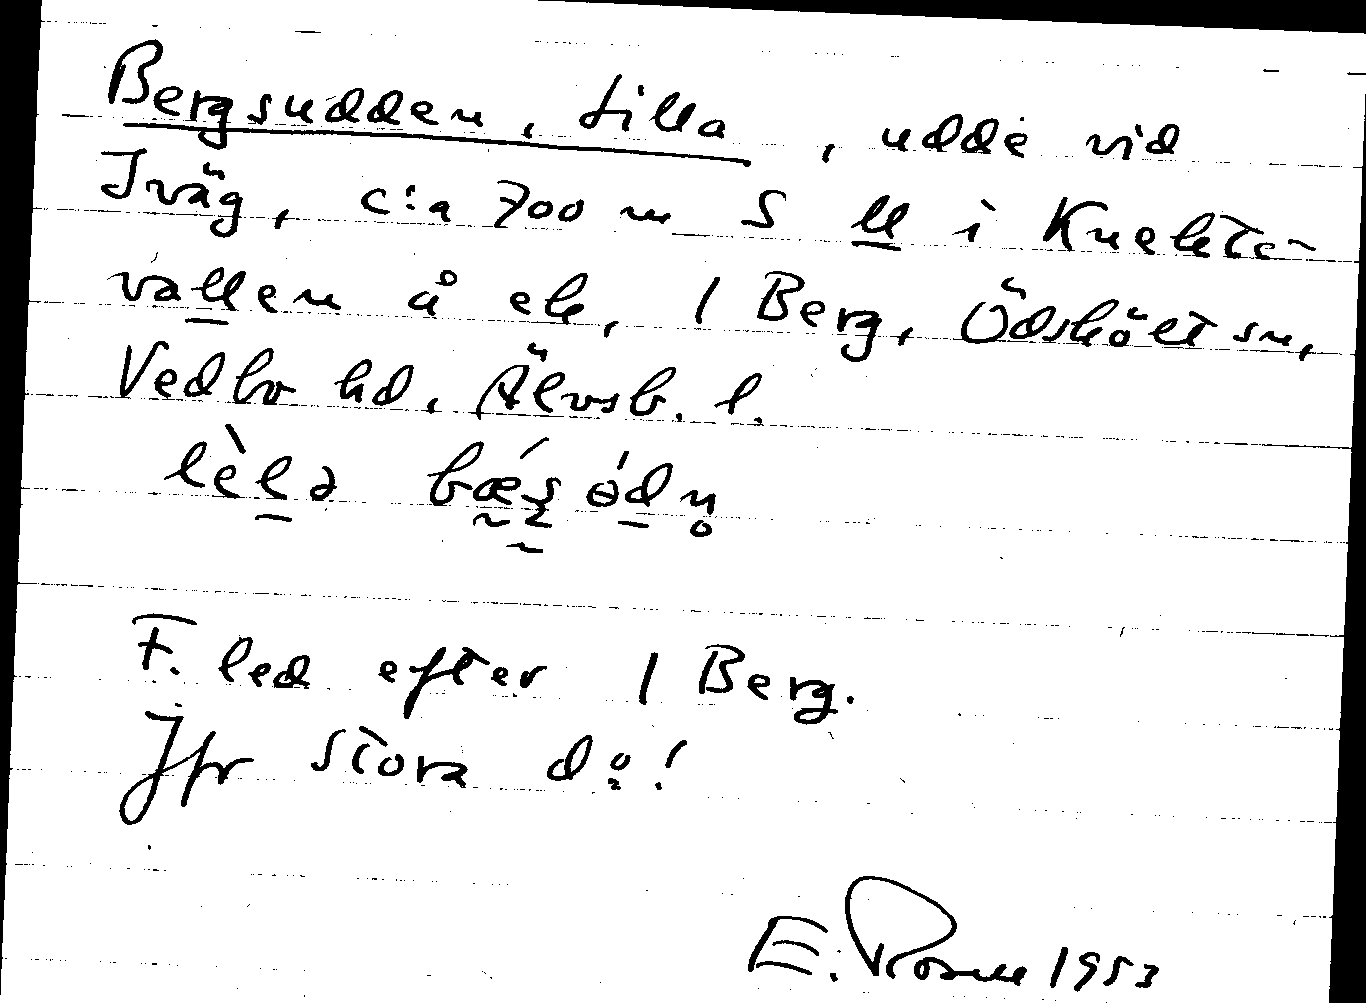 Bergsudden, Lilla, udde vid
Iväg, c:a 700 m S ll i Knehte-
vallen å ek, 1 Berg, Ödskölt sn,
Vedbo hd, Älvsb. l.
F. led efter 1 Berg.
Jfr Stora do!
E. 1953